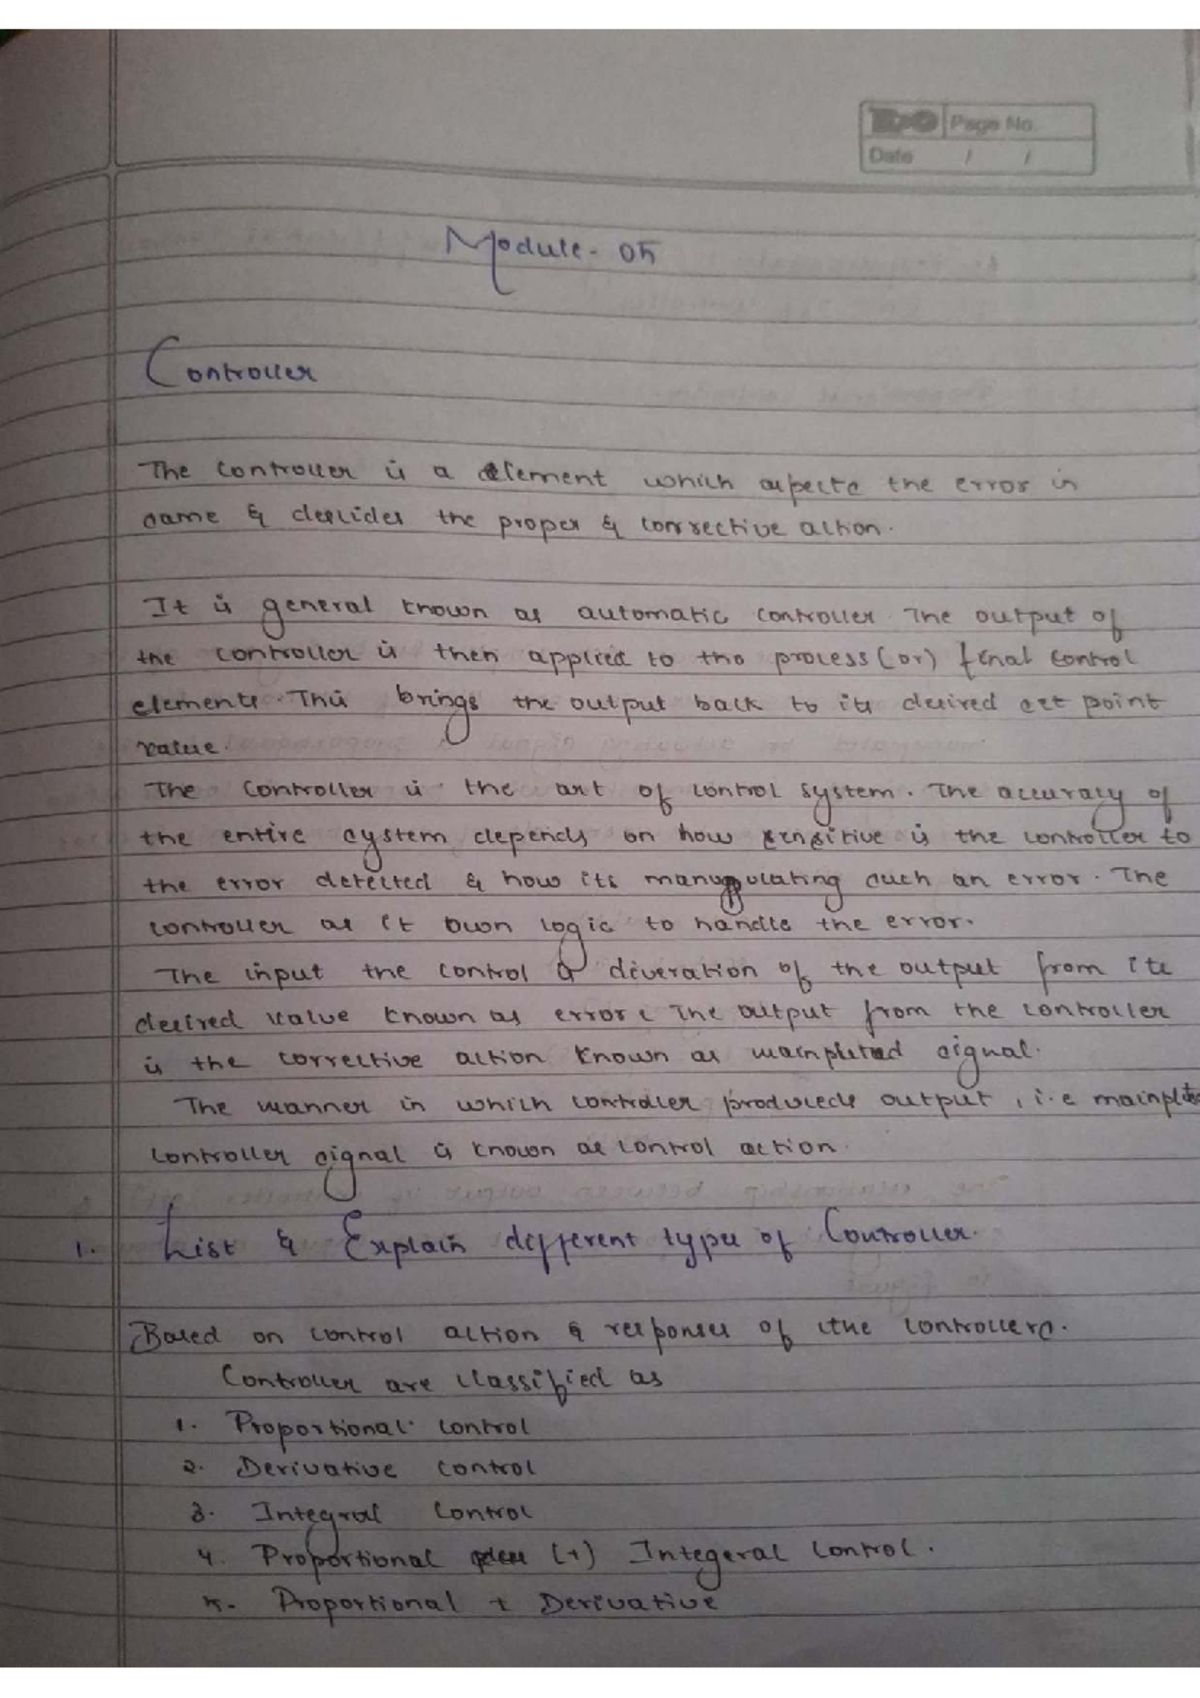 Page No.
Date / /
Module - 05
Controller
The controller is a element which aspects the error in
same & decides the proper & corrective action.
It is general known as automatic controller The output of
the controller is then applied to the process (or) final control
elements. This brings the output back to its desired set point
value.
The controller is the art of control system. The accuracy of
the entire system depends on how sensitive is the controller to
the error detected & how its manuppulating such an error. The
controller as it own logic to handle the error.
The input the control & diveration of the output from its
desired value known as error. The output from the controller
is the corrective action known as mainpleted signal.
The manner in which controller produceds output, i.e
controller signal is known as control action.
1. List & Explain different type of Controller.
Based on control action & responses of the controllers.
Controller are classified as
1. Proportional control
2. Derivative control
3. Integral control
4. Proportional (+) Integeral control.
5. Proportional + Derivative